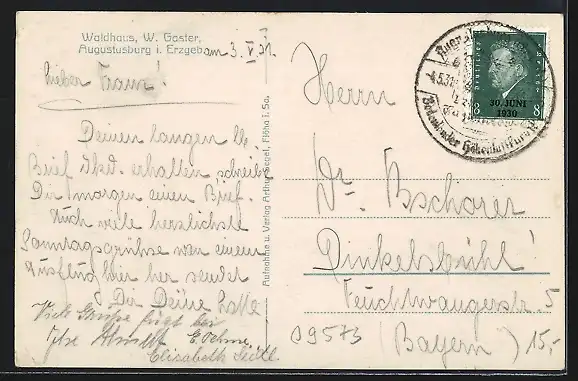 Waldhaus, W. Gaster,
Augustusburg i. Erzgeb.
am 3. V. 31.
Lieber Franz!
Deinen langen lb.
Brief erhalten schreibe
Dir morgen einen Brief.
Auch viele herzlichste
Sonntagsgrüsse von einem
Ausflug hier her sendet
Dir Deine Lotte
Viele Grüsse fügt bei
E. Oehme,
Elisabeth
Aufnahme u. Verlag Arthur Siegel, Flöha i. Sa.
Herrn
Dr. Bschorer
Dinkelsbühl!
Feuchtwangerstr. 5
(Bayern)
09573
15,-
Deutsches Reich
30. JUNI
1930
8 8
4.5.31